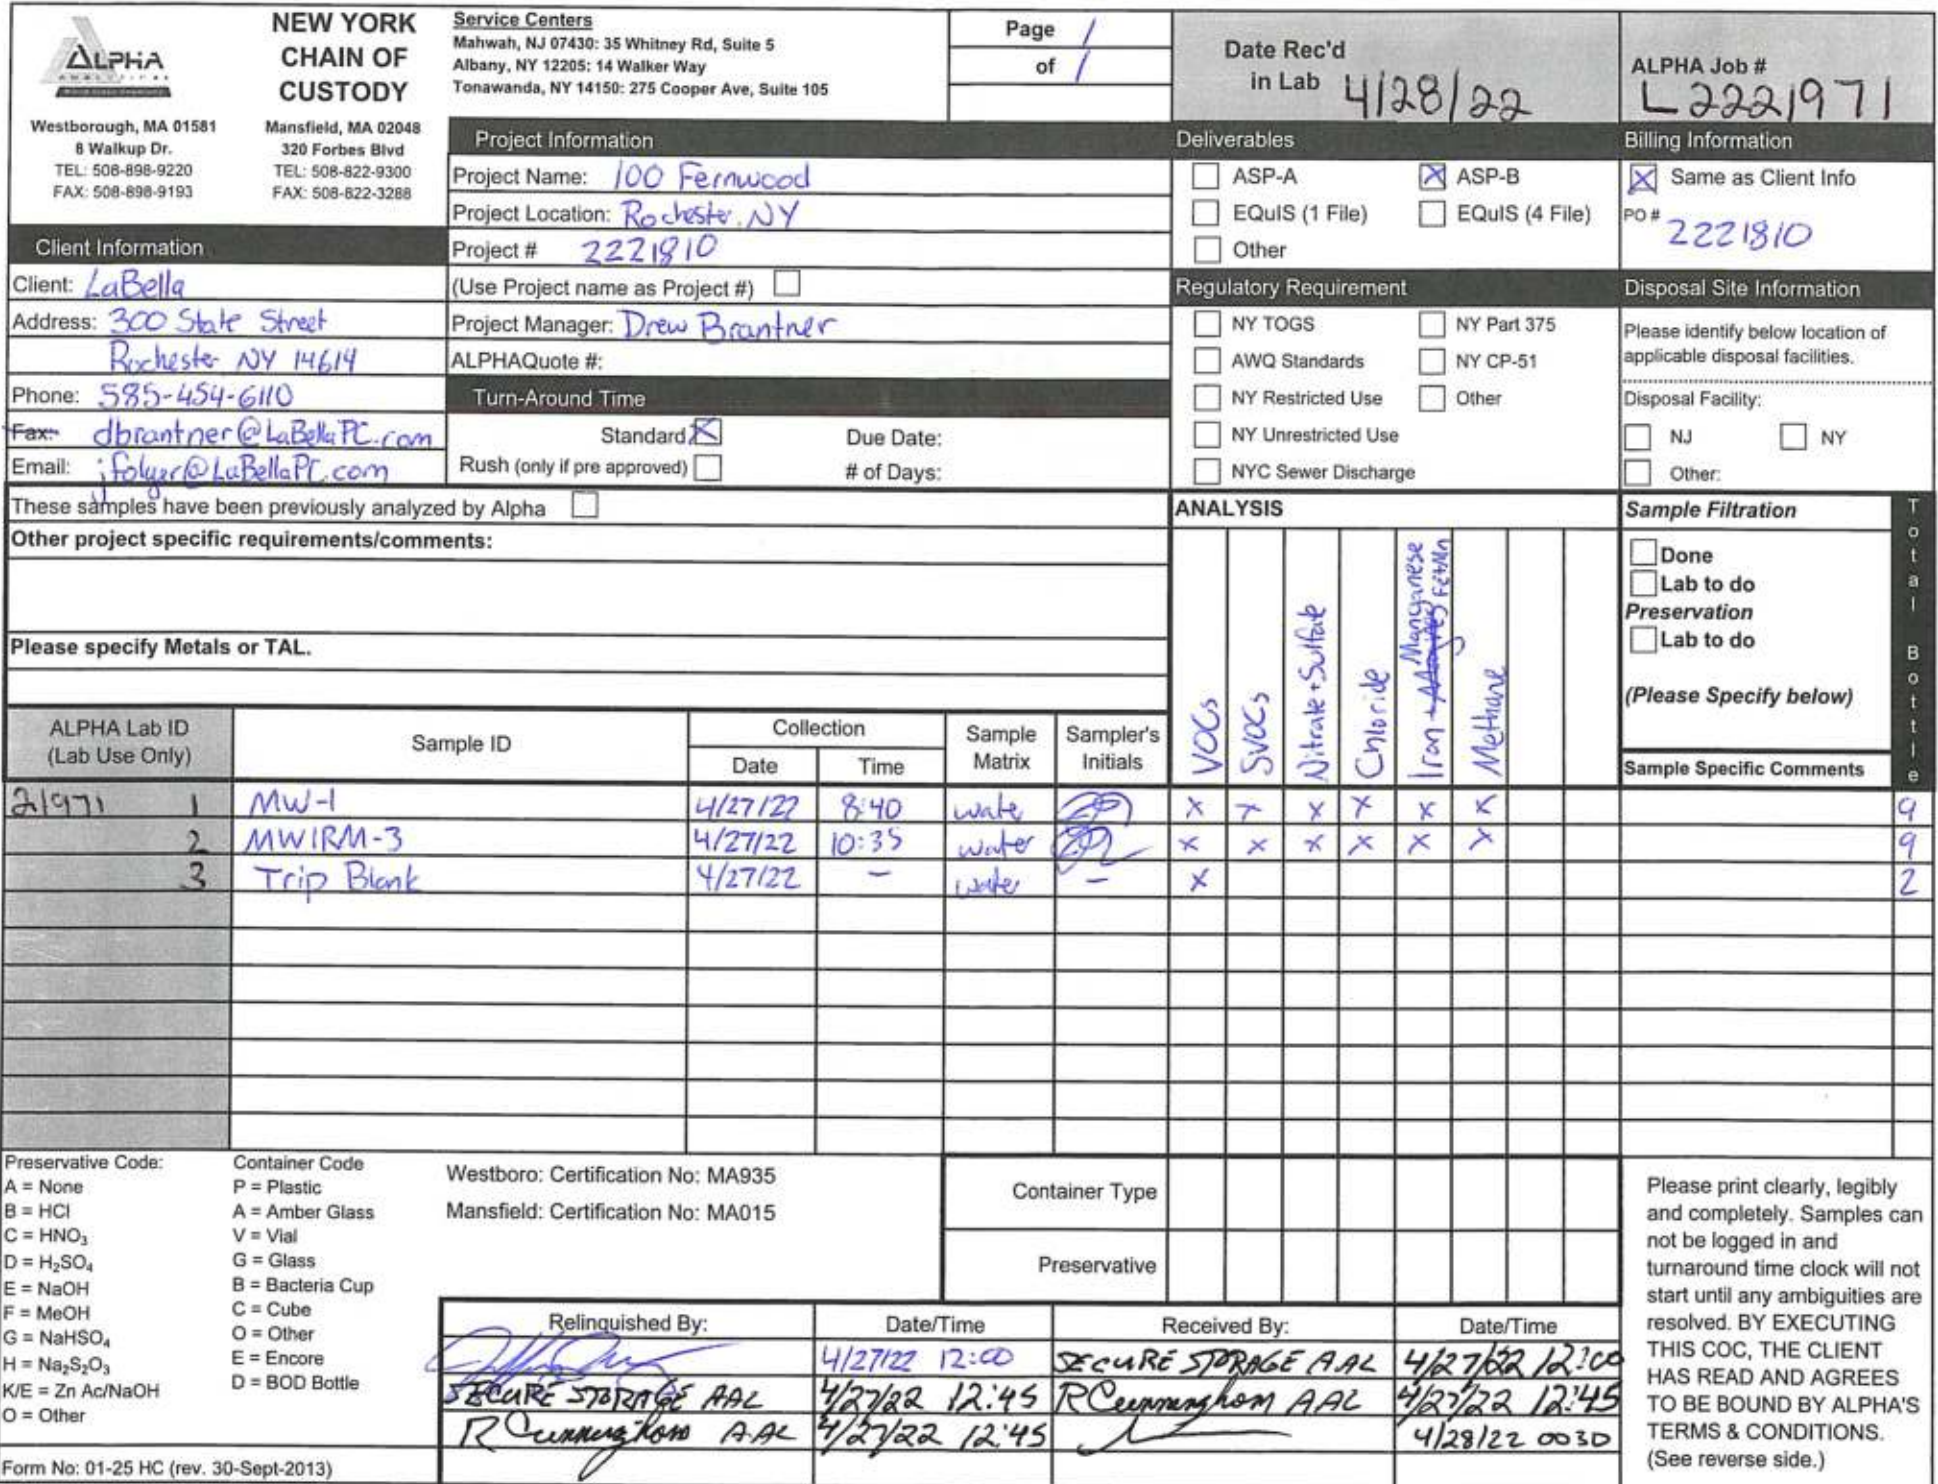 ALPHA
ANALYTICAL
NEW YORK
CHAIN OF
CUSTODY
Westborough, MA 01581
8 Walkup Dr.
TEL: 508-898-9220
FAX: 508-898-9193
Mansfield, MA 02048
320 Forbes Blvd
TEL: 508-822-9300
FAX: 508-822-3288
Service Centers
Mahwah, NJ 07430: 35 Whitney Rd, Suite 5
Albany, NY 12205: 14 Walker Way
Tonawanda, NY 14150: 275 Cooper Ave, Suite 105
Page 1
of 1
Date Rec'd
in Lab 4/28/22
ALPHA Job #
L2221971
Client Information
Client: LaBella
Address: 300 State Street
Rochester NY 14614
Phone: 585-454-6110
Fax: dbrantner@LaBellaPC.com
Email: jfolger@LaBellaPC.com
Project Information
Project Name: 100 Fernwood
Project Location: Rochester, NY
Project # 2221810
(Use Project name as Project #)
Project Manager: Drew Brantner
ALPHAQuote #:
Turn-Around Time
Standard X Due Date:
Rush (only if pre approved) # of Days:
Deliverables
ASP-A X ASP-B
EQuIS (1 File) EQuIS (4 File)
Other
Regulatory Requirement
NY TOGS NY Part 375
AWQ Standards NY CP-51
NY Restricted Use Other
NY Unrestricted Use
NYC Sewer Discharge
Billing Information
X Same as Client Info
PO # 2221810
Disposal Site Information
Please identify below location of
applicable disposal facilities.
Disposal Facility:
NJ NY
Other:
These samples have been previously analyzed by Alpha
Other project specific requirements/comments:
Please specify Metals or TAL.
ANALYSIS
VOCs
SVOCs
Nitrate + Sulfate
Chloride
Iron + Manganese Fe+Mn
Methane
Sample Filtration
Done
Lab to do
Preservation
Lab to do
(Please Specify below)
Sample Specific Comments
Total Bottle
ALPHA Lab ID
(Lab Use Only)
Sample ID
Collection
Date Time
Sample
Matrix
Sampler's
Initials
21971 1 MW-1 4/27/22 8:40 water X X X X X X 9
2 MWIRM-3 4/27/22 10:35 water X X X X X X 9
3 Trip Blank 4/27/22 - water - X 2
Preservative Code:
A = None
B = HCl
C = HNO₃
D = H₂SO₄
E = NaOH
F = MeOH
G = NaHSO₄
H = Na₂S₂O₃
K/E = Zn Ac/NaOH
O = Other
Container Code
P = Plastic
A = Amber Glass
V = Vial
G = Glass
B = Bacteria Cup
C = Cube
O = Other
E = Encore
D = BOD Bottle
Westboro: Certification No: MA935
Mansfield: Certification No: MA015
Container Type
Preservative
Relinquished By: Date/Time Received By: Date/Time
4/27/22 12:00 SECURE STORAGE AAL 4/27/22 12:00
SECURE STORAGE AAL 4/27/22 12:45 R Cunningham AAL 4/27/22 12:45
R Cunningham AAL 4/27/22 12:45 4/28/22 0030
Please print clearly, legibly
and completely. Samples can
not be logged in and
turnaround time clock will not
start until any ambiguities are
resolved. BY EXECUTING
THIS COC, THE CLIENT
HAS READ AND AGREES
TO BE BOUND BY ALPHA'S
TERMS & CONDITIONS.
(See reverse side.)
Form No: 01-25 HC (rev. 30-Sept-2013)